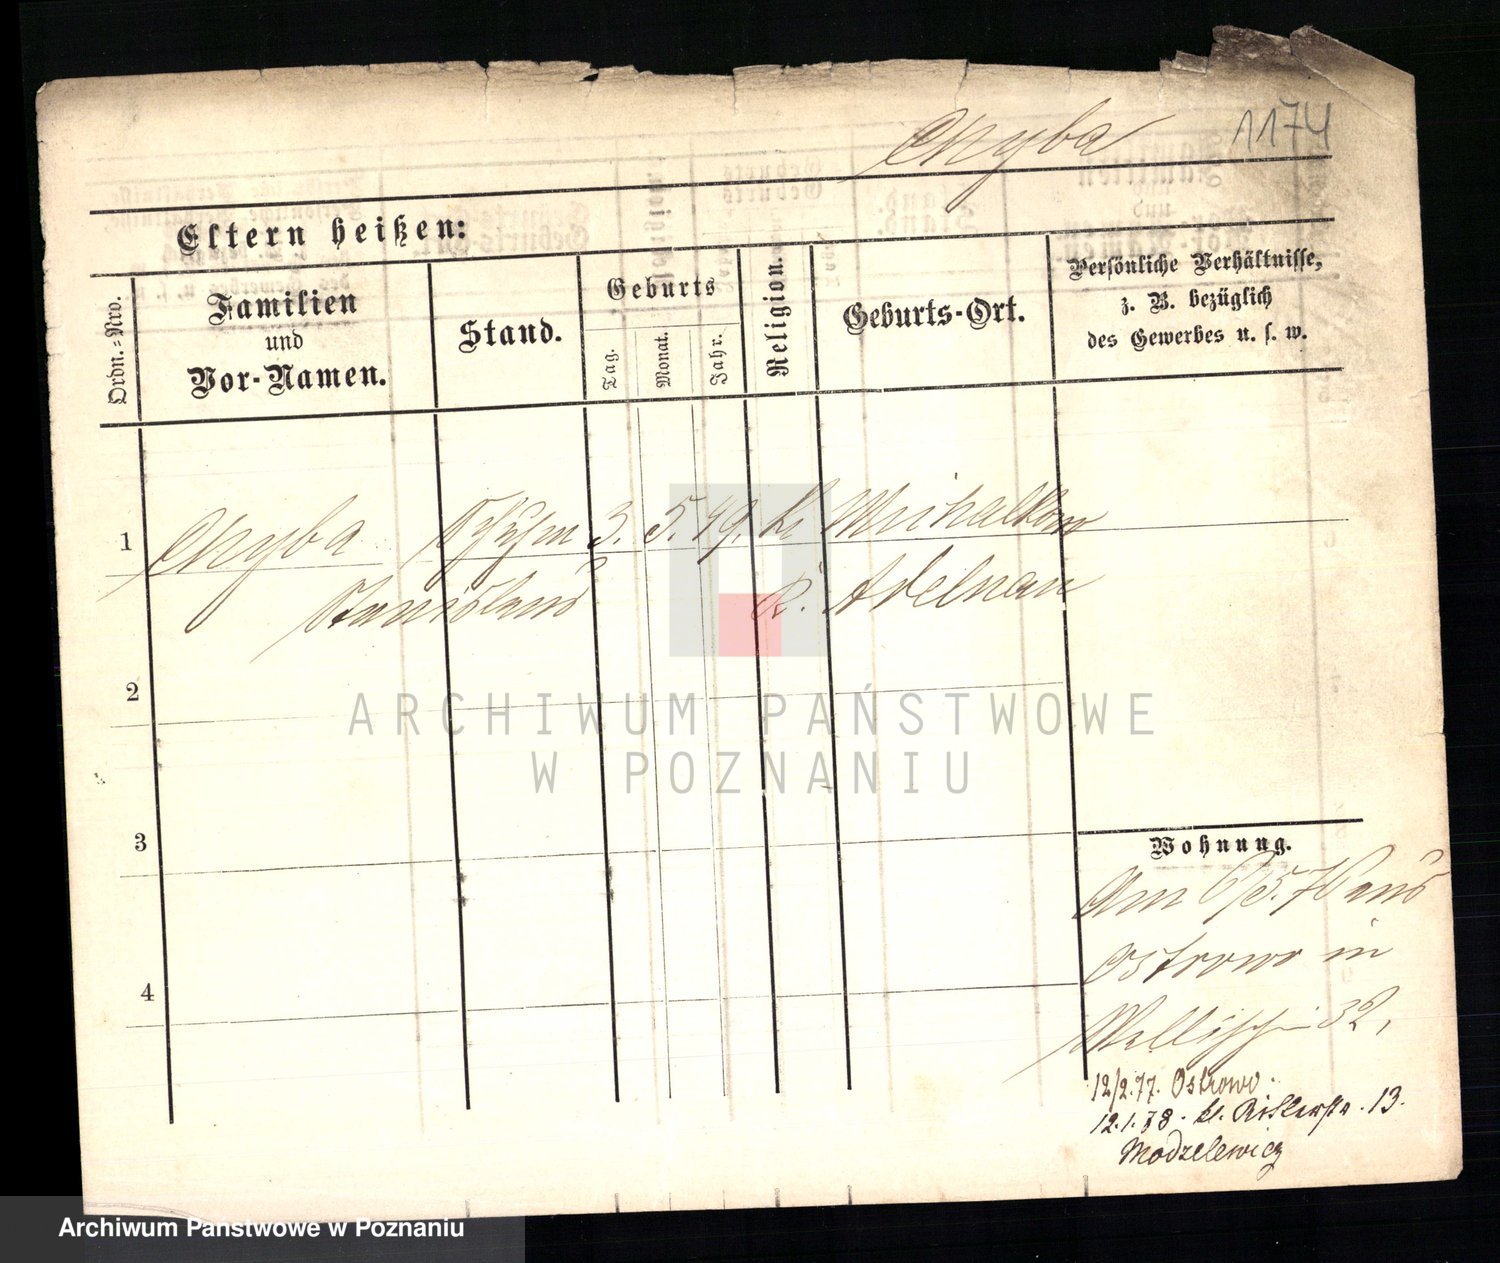 Chyba 1174
Eltern heißen:
Ordn.-Nro.
Familien
und
Vor-Namen.
Stand.
Geburts
Tag.
Monat.
Jahr.
Religion.
Geburts-Ort.
Persönliche Verhältnisse,
z. B. bezüglich
des Gewerbes u. s. w.
1 Chyba 3. 5. 49. k. Michalkow
Stanislaus K. Adelnau
2
3
4
Wohnung.
Am 6/5. aus
Ostrowo in
Wallischei 32,
12/2.77. Ostrowo.
12.1.78. kl. Ritterstr. 13.
Modzelewicz
ARCHIWUM PAŃSTWOWE
W POZNANIU
Archiwum Państwowe w Poznaniu